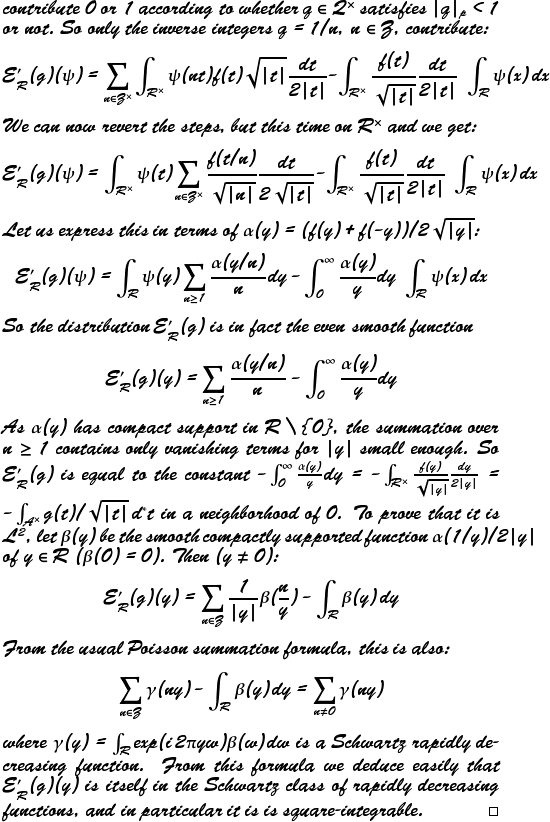 contribute 0 or 1 according to whether q ∈ Q^× satisfies |q|_p < 1
or not. So only the inverse integers q = 1/n, n ∈ Z, contribute:
E'_R(g)(ψ) = ∑_{n∈Z^×} ∫_{R^×} ψ(nt)f(t)√|t| dt/2|t| − ∫_{R^×} f(t)/√|t| dt/2|t| ∫_R ψ(x) dx
We can now revert the steps, but this time on R^× and we get:
E'_R(g)(ψ) = ∫_{R^×} ψ(t) ∑_{n∈Z^×} f(t/n)/√|n| dt/2√|t| − ∫_{R^×} f(t)/√|t| dt/2|t| ∫_R ψ(x) dx
Let us express this in terms of α(y) = (f(y) + f(−y))/2√|y|:
E'_R(g)(ψ) = ∫_R ψ(y) ∑_{n≥1} α(y/n)/n dy − ∫_0^∞ α(y)/y dy ∫_R ψ(x) dx
So the distribution E'_R(g) is in fact the even smooth function
E'_R(g)(y) = ∑_{n≥1} α(y/n)/n − ∫_0^∞ α(y)/y dy
As α(y) has compact support in R \ {0}, the summation over
n ≥ 1 contains only vanishing terms for |y| small enough. So
E'_R(g) is equal to the constant − ∫_0^∞ α(y)/y dy = − ∫_{R^×} f(y)/√|y| dy/2|y| =
− ∫_{A^×} g(t)/√|t| d^*t in a neighborhood of 0. To prove that it is
L², let β(y) be the smooth compactly supported function α(1/y)/2|y|
of y ∈ R (β(0) = 0). Then (y ≠ 0):
E'_R(g)(y) = ∑_{n∈Z} 1/|y| β(n/y) − ∫_R β(y) dy
From the usual Poisson summation formula, this is also:
∑_{n∈Z} γ(ny) − ∫_R β(y) dy = ∑_{n≠0} γ(ny)
where γ(y) = ∫_R exp(i 2πyw)β(w) dw is a Schwartz rapidly de-
creasing function. From this formula we deduce easily that
E'_R(g)(y) is itself in the Schwartz class of rapidly decreasing
functions, and in particular it is is square-integrable. □